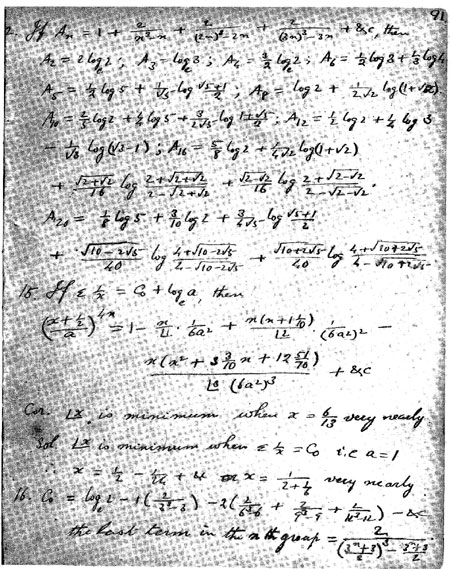 91
2. If Aₙ = 1 + 2/(n³-n) + 2/((2n)³-2n) + 2/((3n)³-3n) + &c, then
A₂ = 2 logₑ2; A₃ = logₑ3; A₄ = 3/2 logₑ2; A₆ = 1/2 log 3 + 1/3 log 4
A₅ = 1/2 log 5 + 1/√5 log (√5+1)/2; A₈ = log 2 + 1/(2√2) log(1+√2)
A₁₀ = 2/5 log 2 + 1/4 log 5 + 3/(2√5) log (1+√5)/2; A₁₂ = 1/2 log 2 + 1/4 log 3
- 1/√3 log(√3-1); A₁₆ = 5/8 log 2 + 1/(4√2) log(1+√2)
+ √(2+√2)/16 log (2+√(2+√2))/(2-√(2+√2)) + √(2-√2)/16 log (2+√(2-√2))/(2-√(2-√2)).
A₂₀ = 1/8 log 5 + 3/10 log 2 + 3/(4√5) log (√5+1)/2
+ √(10-2√5)/40 log (4+√(10-2√5))/(4-√(10-2√5)) + √(10+2√5)/40 log (4+√(10+2√5))/(4-√(10+2√5))
15. If Σ 1/x = C₀ + logₑ a, then
((x+1/2)/a)^(4n) = 1 - n/⌊1 · 1/(6a²) + n(n+1 1/10)/⌊2 · 1/(6a²)² -
n(n² + 3 3/10 n + 12 51/70)/(⌊3 (6a²)³) + &c
Cor. ⌊x is minimum when x = 6/13 very nearly
Sol ⌊x is minimum when Σ 1/x = C₀ i.e a = 1
∴ x = 1/2 - 1/26 + &c or x = 1/(2+1/6) very nearly
16. C₀ = logₑ2 - 1(2/(3³-3)) - 2(2/(6³-6) + 2/(9³-9) + 2/(12³-12)) - &c
the last term in the nth group = 2/(((3ⁿ+3)/2)³ - (3ⁿ+3)/2)